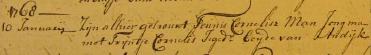 1768
10 Januarij Zijn alhier getrouwt Teunis Cornelisz Man Jongman
met Trijntje Cornelis Jonged: beyde van Andijk